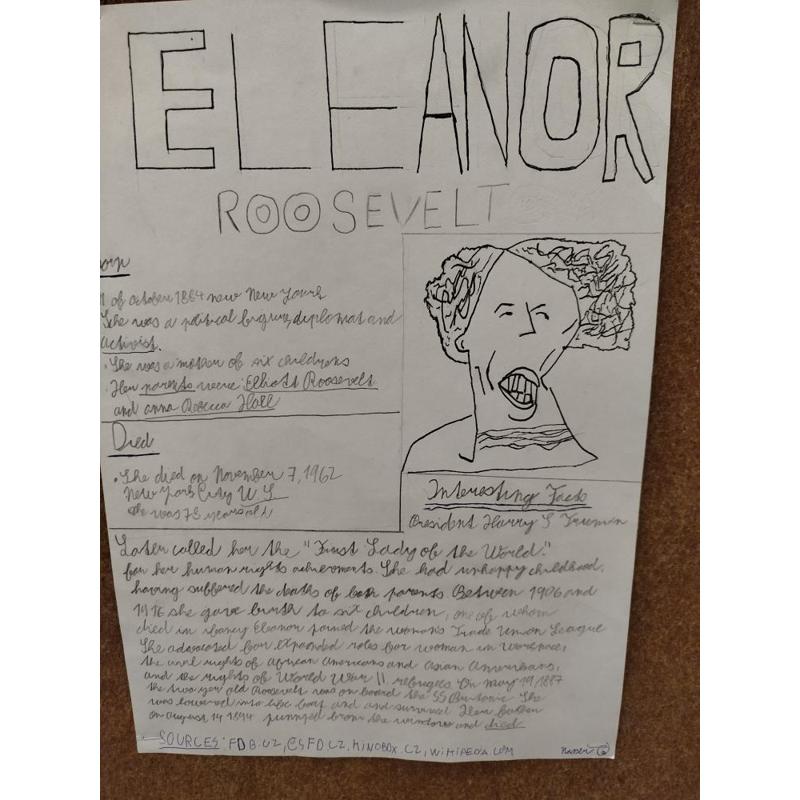 ELEANOR
ROOSEVELT
orn
1 of october 1884 new New Yourk
She was a political figure, diplomat and
activist.
· She was a mother of six childrens
· Her parents were: Elliott Roosevelt
and anna Rebecca Hall
Died
• She died on November 7, 1962
New York City U.S
She was 78 years old
Interesting Facts
President Harry S Truman
Later called her the "First Lady of the World."
for her human rights achievments. She had unhappy childhood,
having suffered the deaths of both parents Between 1906 and
1916 she gave birth to six children, one of whom
died in Eleanor joined the womans Trade Union League
She advocated for expanded roles for woman in
the civil rights of African Americans and Asian Amerikans,
and the rights of World War II, refugees On may 19, 1887
the two year old Roosevelt was on board the SS She
was lowered into life boat and and survived Her
on August 14 1894 jumped from the window and died
SOURCES: FDB.CZ, ČSFD CZ, KINOBOX.CZ, WIKIPEDIA.COM